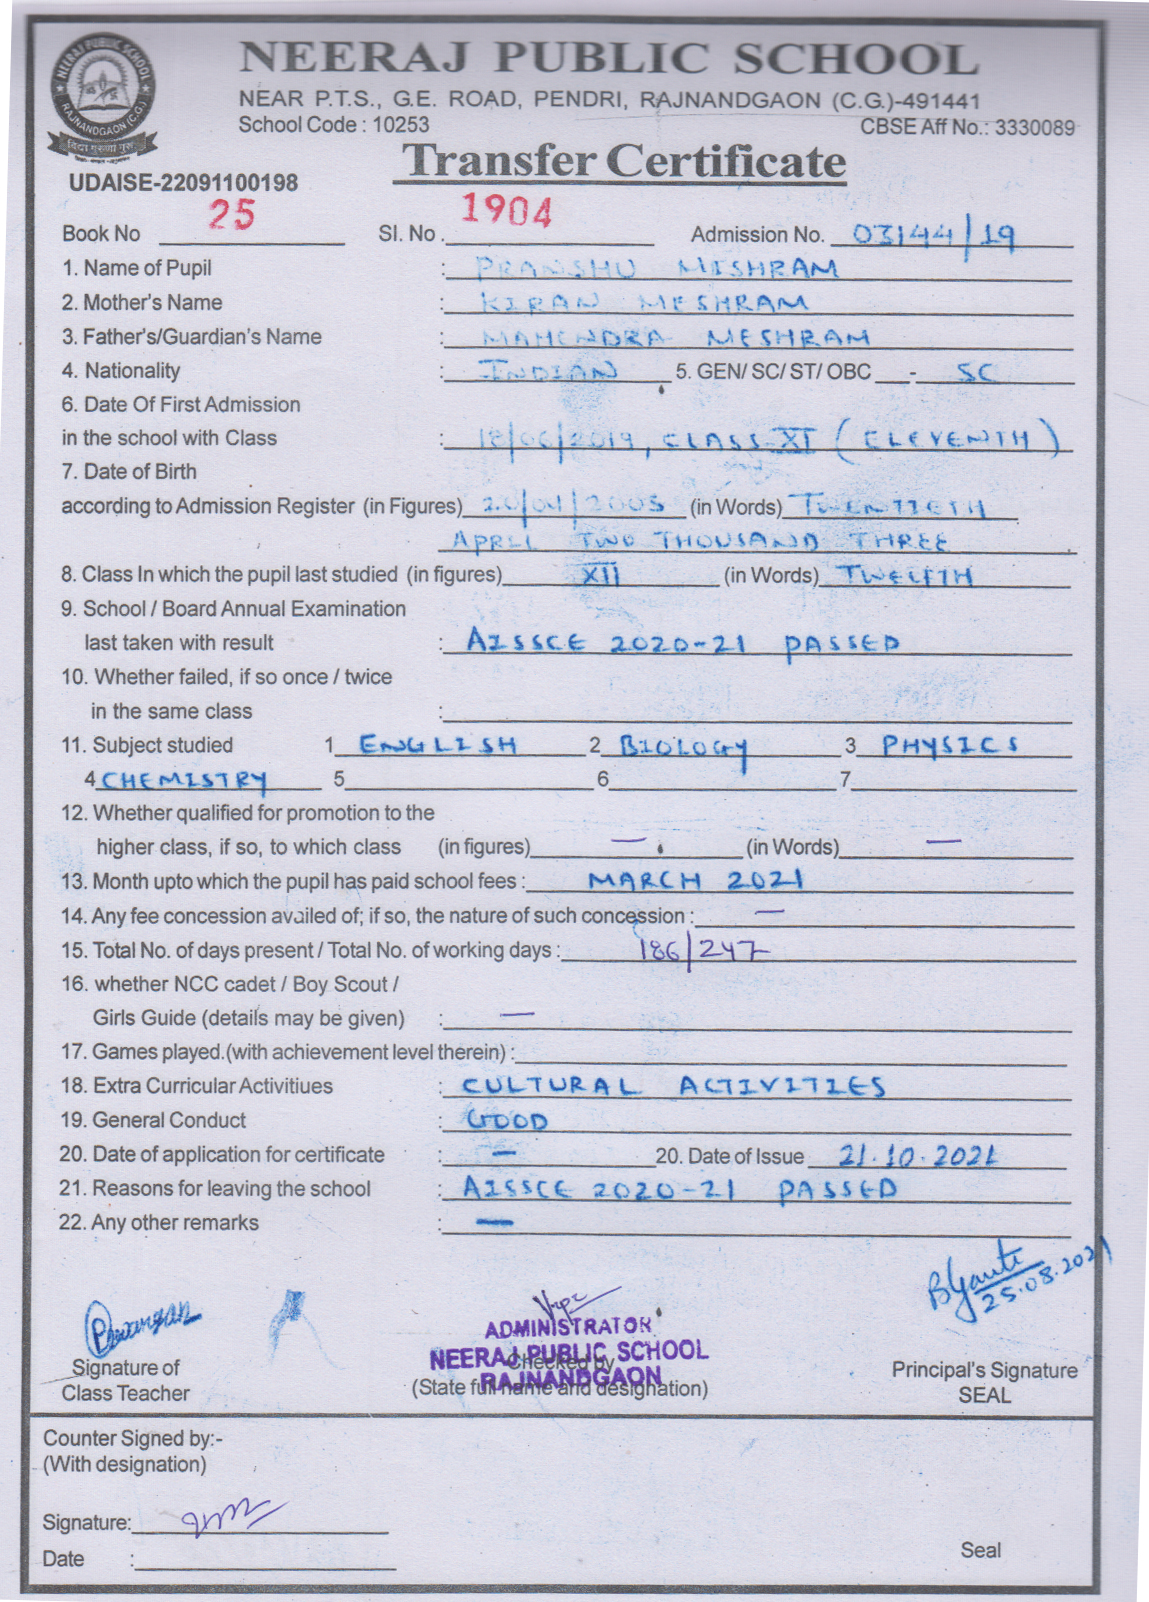 NEERAJ PUBLIC SCHOOL
NEERAJ PUBLIC SCHOOL
RAJNANDGAON (C.G.)
NEAR P.T.S., G.E. ROAD, PENDRI, RAJNANDGAON (C.G.)-491441
School Code : 10253 CBSE Aff No.: 3330089
Transfer Certificate
UDAISE-22091100198
Book No 25 Sl. No. 1904 Admission No. 03144/19
1. Name of Pupil : PRANSHU MESHRAM
2. Mother's Name : KIRAN MESHRAM
3. Father's/Guardian's Name : MAHENDRA MESHRAM
4. Nationality : INDIAN 5. GEN/ SC/ ST/ OBC - SC
6. Date Of First Admission
in the school with Class : 18/06/2019, CLASS XI (ELEVENTH)
7. Date of Birth
according to Admission Register (in Figures) 20/04/ (in Words) TWENTIETH
APRIL TWO THOUSAND THREE
8. Class In which the pupil last studied (in figures) XII (in Words) TWELFTH
9. School / Board Annual Examination
last taken with result : AISSCE 2020-21 PASSED
10. Whether failed, if so once / twice
in the same class :
11. Subject studied 1 ENGLISH 2 BIOLOGY 3 PHYSICS
4 CHEMISTRY 5 6 7
12. Whether qualified for promotion to the
higher class, if so, to which class (in figures) — (in Words) —
13. Month upto which the pupil has paid school fees : MARCH 2021
14. Any fee concession availed of; if so, the nature of such concession : —
15. Total No. of days present / Total No. of working days : 186/247
16. whether NCC cadet / Boy Scout /
Girls Guide (details may be given) : —
17. Games played.(with achievement level therein) :
18. Extra Curricular Activitiues : CULTURAL ACTIVITIES
19. General Conduct : GOOD
20. Date of application for certificate : — 20. Date of Issue 21.10.2021
21. Reasons for leaving the school : AISSCE 2020-21 PASSED
22. Any other remarks : —
25.08.2021
ADMINISTRATOR
NEERAJ PUBLIC SCHOOL
RAJNANDGAON
Signature of Checked by Principal's Signature
Class Teacher (State full name and designation) SEAL
Counter Signed by:-
(With designation)
Signature:
Date : Seal